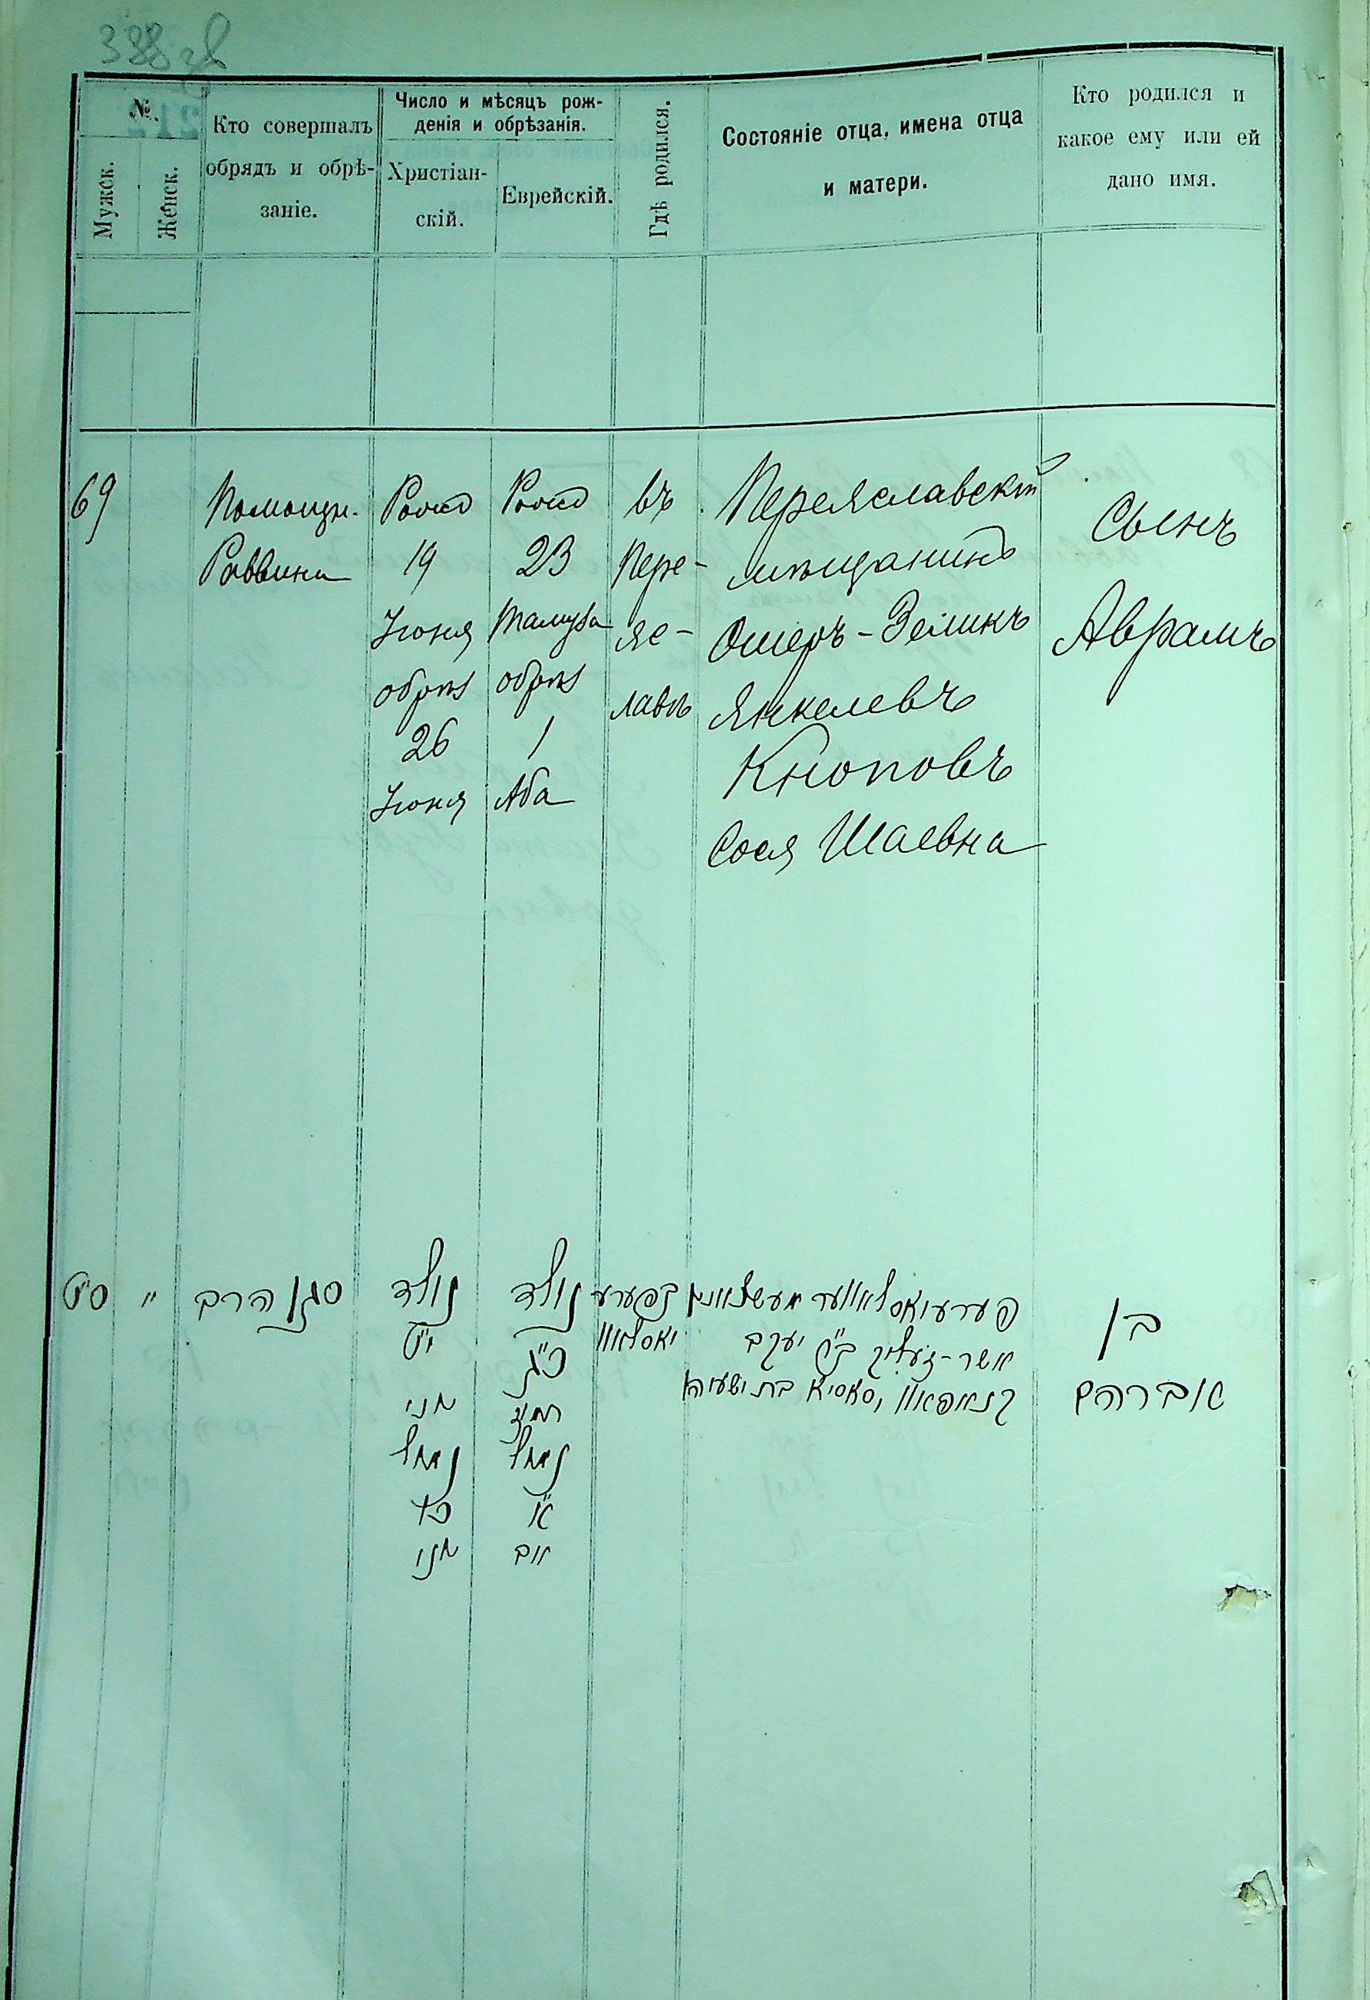 №.
Мужск.
Женск.
Кто совершалъ
обрядъ и обрѣ-
заніе.
Число и мѣсяцъ рож-
денія и обрѣзанія.
Христіан-
скій.
Еврейскій.
Гдѣ родился.
Состояніе отца, имена отца
и матери.
Кто родился и
какое ему или ей
дано имя.
69
Помощн.
Раввина
19
Іюня
обрѣз
26
Іюня
23
Тамуза
обрѣз
1
Аба
въ
Пере-
яс-
лавѣ
Переяславскій
мѣщанинъ
Ошеръ-Зеликъ
Янкелевъ
Кноповъ
Сося Шаевна
Сынъ
Аврамъ
ס״ט
״
סגן הרב
נולד
י״ט
יוני
נמול
כו
יוני
נולד
כ״ג
תמוז
נמול
א׳
אב
בפערע
יאסלאוו
פערעיאסלאווער מעשצאנין
אשר-זעליק ב״ר יעקב
קנאפאוו, סאסיא בת ישעיהו
בן
אברהם